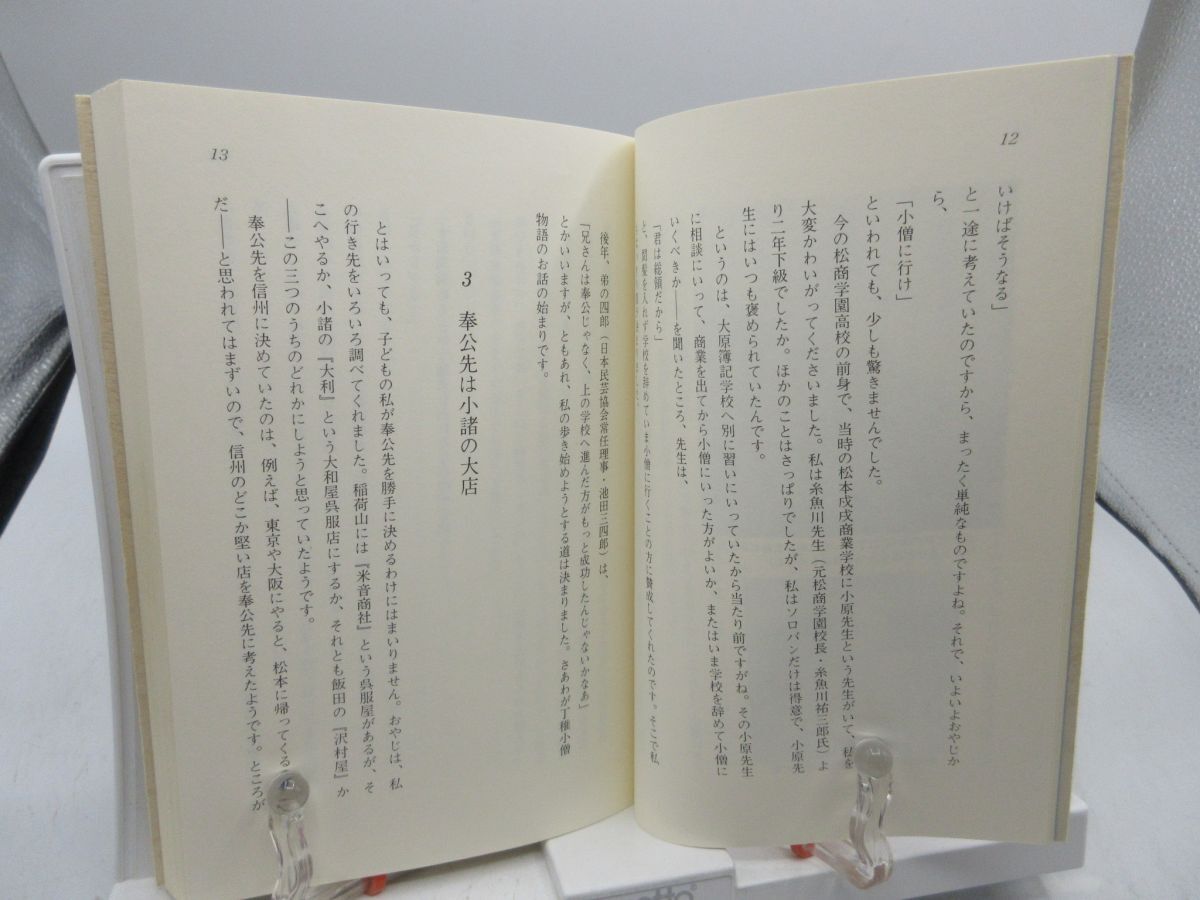 12
いけばそうなる」
と一途に考えていたのですから、まったく単純なものですよね。それで、いよいよおやじか
ら、
「小僧に行け」
といわれても、少しも驚きませんでした。
今の松商学園高校の前身で、当時の松本戊戌商業学校に小原先生という先生がいて、私を
大変かわいがってくださいました。私は糸魚川先生（元松商学園校長・糸魚川祐三郎氏）よ
り二年下級でしたか。ほかのことはさっぱりでしたが、私はソロバンだけは得意で、小原先
生にはいつも褒められていたんです。
というのは、大原簿記学校へ別に習いにいっていたから当たり前ですがね。その小原先生
に相談にいって、商業を出てから小僧にいった方がよいか、またはいま学校を辞めて小僧に
いくべきか――を聞いたところ、先生は、
「君は総領だから」
と、間髪を入れず学校を辞めていま小僧に行くことの方に賛成してくれたのです。そこで私
13
後年、弟の四郎（日本民芸協会常任理事・池田三四郎）は、
「兄さんは奉公じゃなく、上の学校へ進んだ方がもっと成功したんじゃないかなあ」
とかいいますが、ともあれ、私の歩き始めようとする道は決まりました。さあわが丁稚小僧
物語のお話の始まりです。
3 奉公先は小諸の大店
とはいっても、子どもの私が奉公先を勝手に決めるわけにはまいりません。おやじは、私
の行き先をいろいろ調べてくれました。稲荷山には『米音商社』という呉服屋があるが、そ
こへやるか、小諸の『大利』という大和屋呉服店にするか、それとも飯田の『沢村屋』か
――この三つのうちのどれかにしようと思っていたようです。
奉公先を信州に決めていたのは、例えば、東京や大阪にやると、松本に帰ってくる
だ――と思われてはまずいので、信州のどこか堅い店を奉公先に考えたようです。ところが